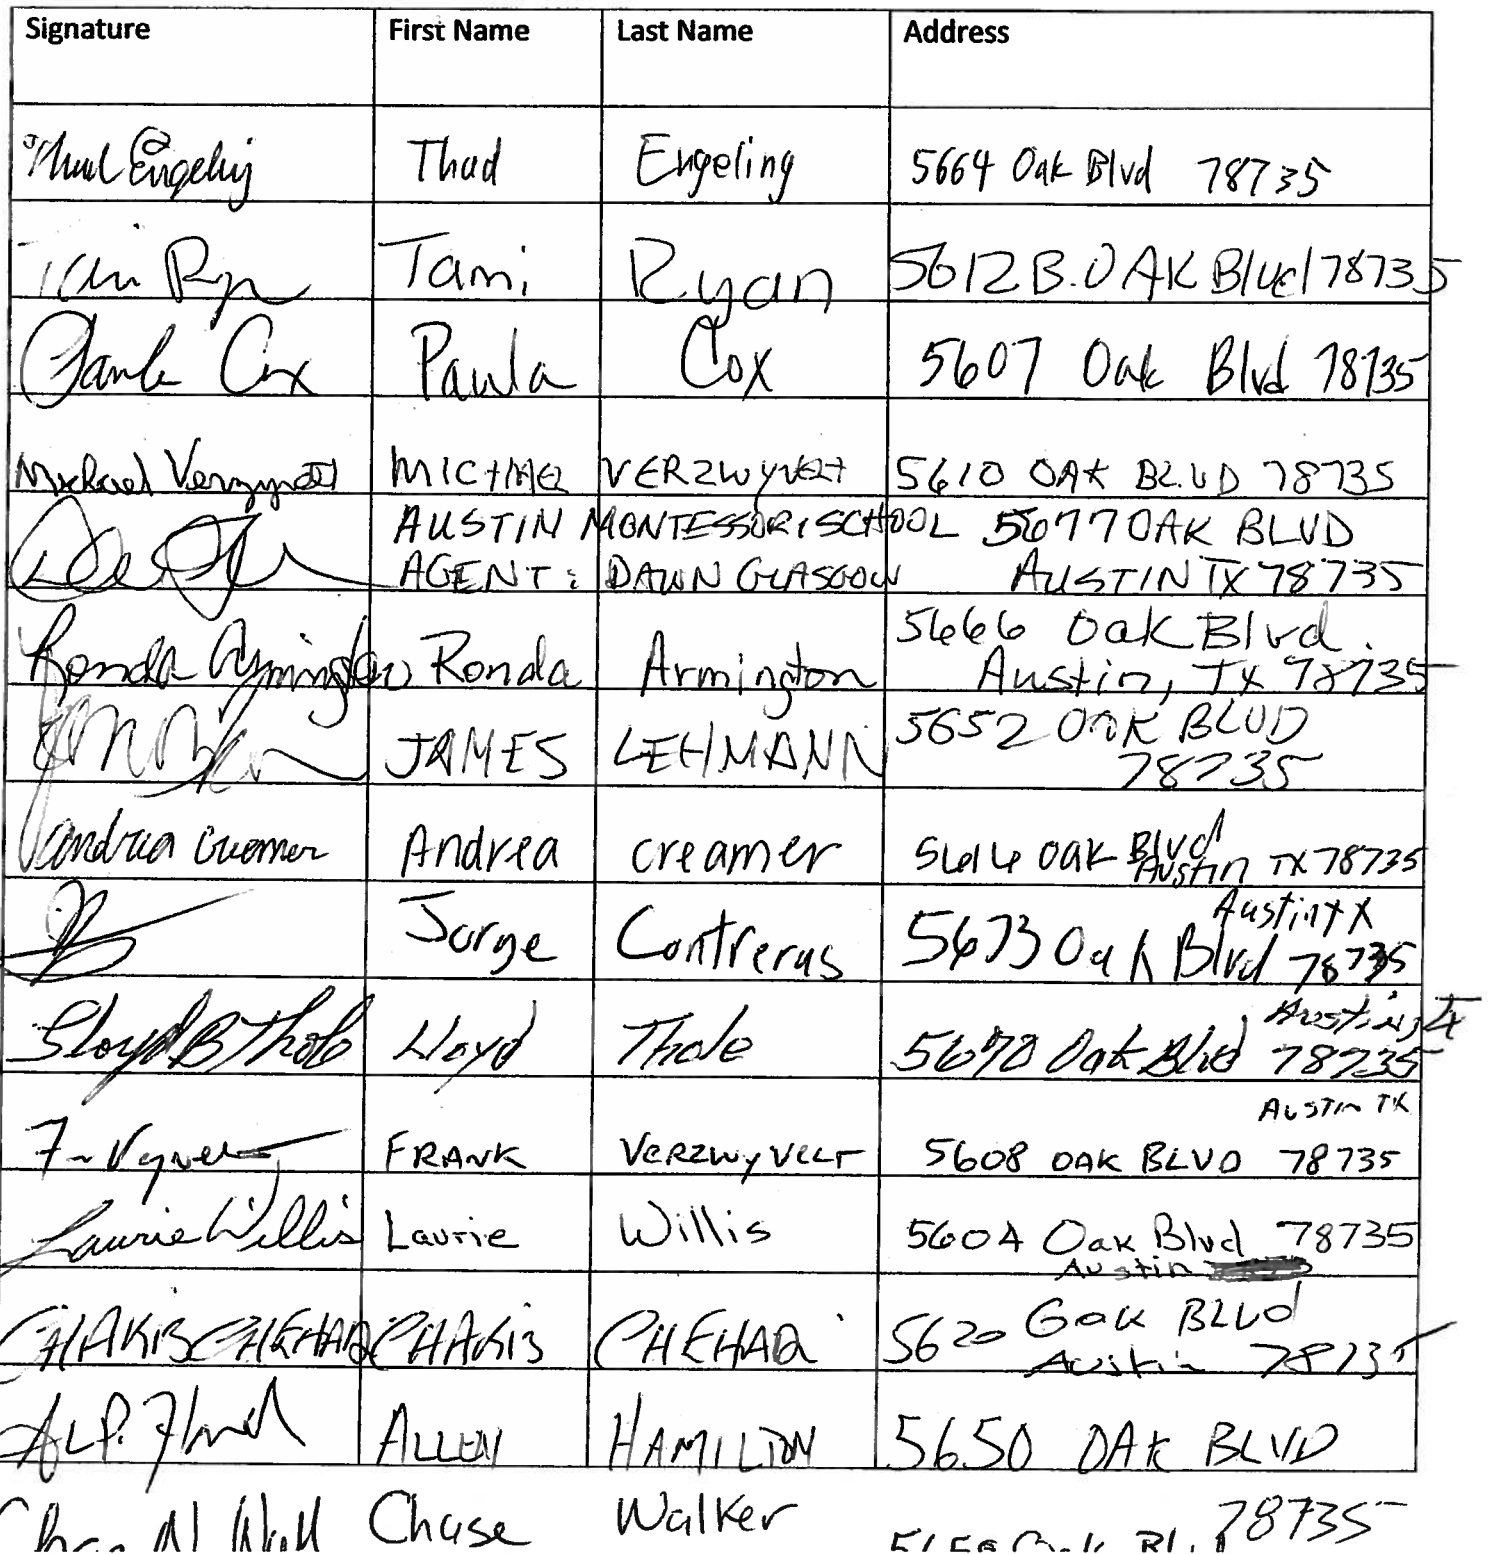 Signature First Name Last Name Address
Thad Engeling Thad Engeling 5664 Oak Blvd 78735
Tami Ryan Tami Ryan 5612 B. OAK Blvd 78735
Paula Cox Paula Cox 5607 Oak Blvd 78735
Michael Verzwyvelt MICHAEL VERZWYVELT 5610 OAK BLVD 78735
AUSTIN MONTESSORI SCHOOL 5677 OAK BLVD
AGENT: DAWN GLASGOW AUSTIN TX 78735
Ronda Armington Ronda Armington 5666 Oak Blvd.
Austin, TX 78735
JAMES LEHMANN 5652 OAK BLVD
78735
Andrea Creamer Andrea creamer 5616 Oak Blvd
Austin TX 78735
Jorge Contreras 5673 Oak Blvd Austin TX
78735
Lloyd B Thole Lloyd Thole 5670 Oak Blvd Austin, TX
78735
AUSTIN TX
FRANK VERZWYVELT 5608 OAK BLVD 78735
Laurie Willis Laurie Willis 5604 Oak Blvd 78735
Austin
CHAKIB CHEHADI CHAKIB CHEHADI 5620 Oak BLVD
Austin 78735
ALLEN HAMILTON 5650 OAK BLVD
78735
Chase Walker